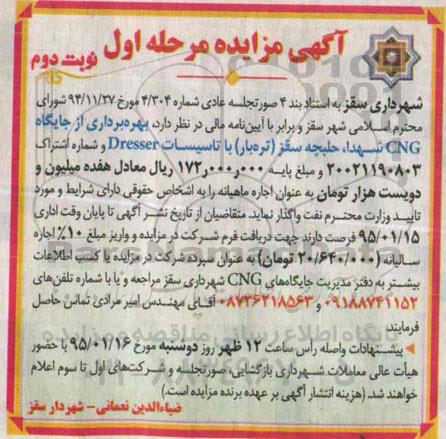 آگهی مزایده مرحله اول
نوبت دوم
شهرداری سقز به استناد بند ۴ صورتجلسه عادی شماره ۴/۳۰۴ مورخ ۹۴/۱۱/۲۷ شورای
محترم اسلامی شهر سقز و برابر با آیین‌نامه مالی در نظر دارد، بهره‌برداری از جایگاه
CNG شهدا، حلبچه سقز (تره‌بار) با تاسیسات Dresser و شماره اشتراک
۲۰۰۲۱۱۹۰۸۰۳ و مبلغ پایه ۱۷۲٫۰۰۰٫۰۰۰ ریال معادل هفده میلیون و
دویست هزار تومان به عنوان اجاره ماهیانه را به اشخاص حقوقی دارای شرایط و مورد
تایید وزارت محترم نفت واگذار نماید. متقاضیان از تاریخ نشر آگهی تا پایان وقت اداری
۹۵/۰۱/۱۵ فرصت دارند جهت دریافت فرم شرکت در مزایده و واریز مبلغ ۱۰٪ اجاره
سالیانه (۲۰/۶۴۰/۰۰۰ تومان) به عنوان سپرده شرکت در مزایده یا کسب اطلاعات
بیشتر به دفتر مدیریت جایگاه‌های CNG شهرداری سقز مراجعه و یا با شماره تلفن‌های
۰۹۱۸۸۷۴۱۱۵۲ و ۰۸۷۳۶۲۱۸۵۶۳ آقای مهندس امیر مرادی تماس حاصل
فرمایند
◄ پیشنهادات واصله رأس ساعت ۱۲ ظهر روز دوشنبه مورخ ۹۵/۰۱/۱۶ با حضور
هیأت عالی معاملات شهرداری بازگشایی، صورتجلسه و شرکت‌های اول تا سوم اعلام
خواهند شد. (هزینه انتشار آگهی بر عهده برنده مزایده است.)
ضیاءالدین نعمانی- شهردار سقز